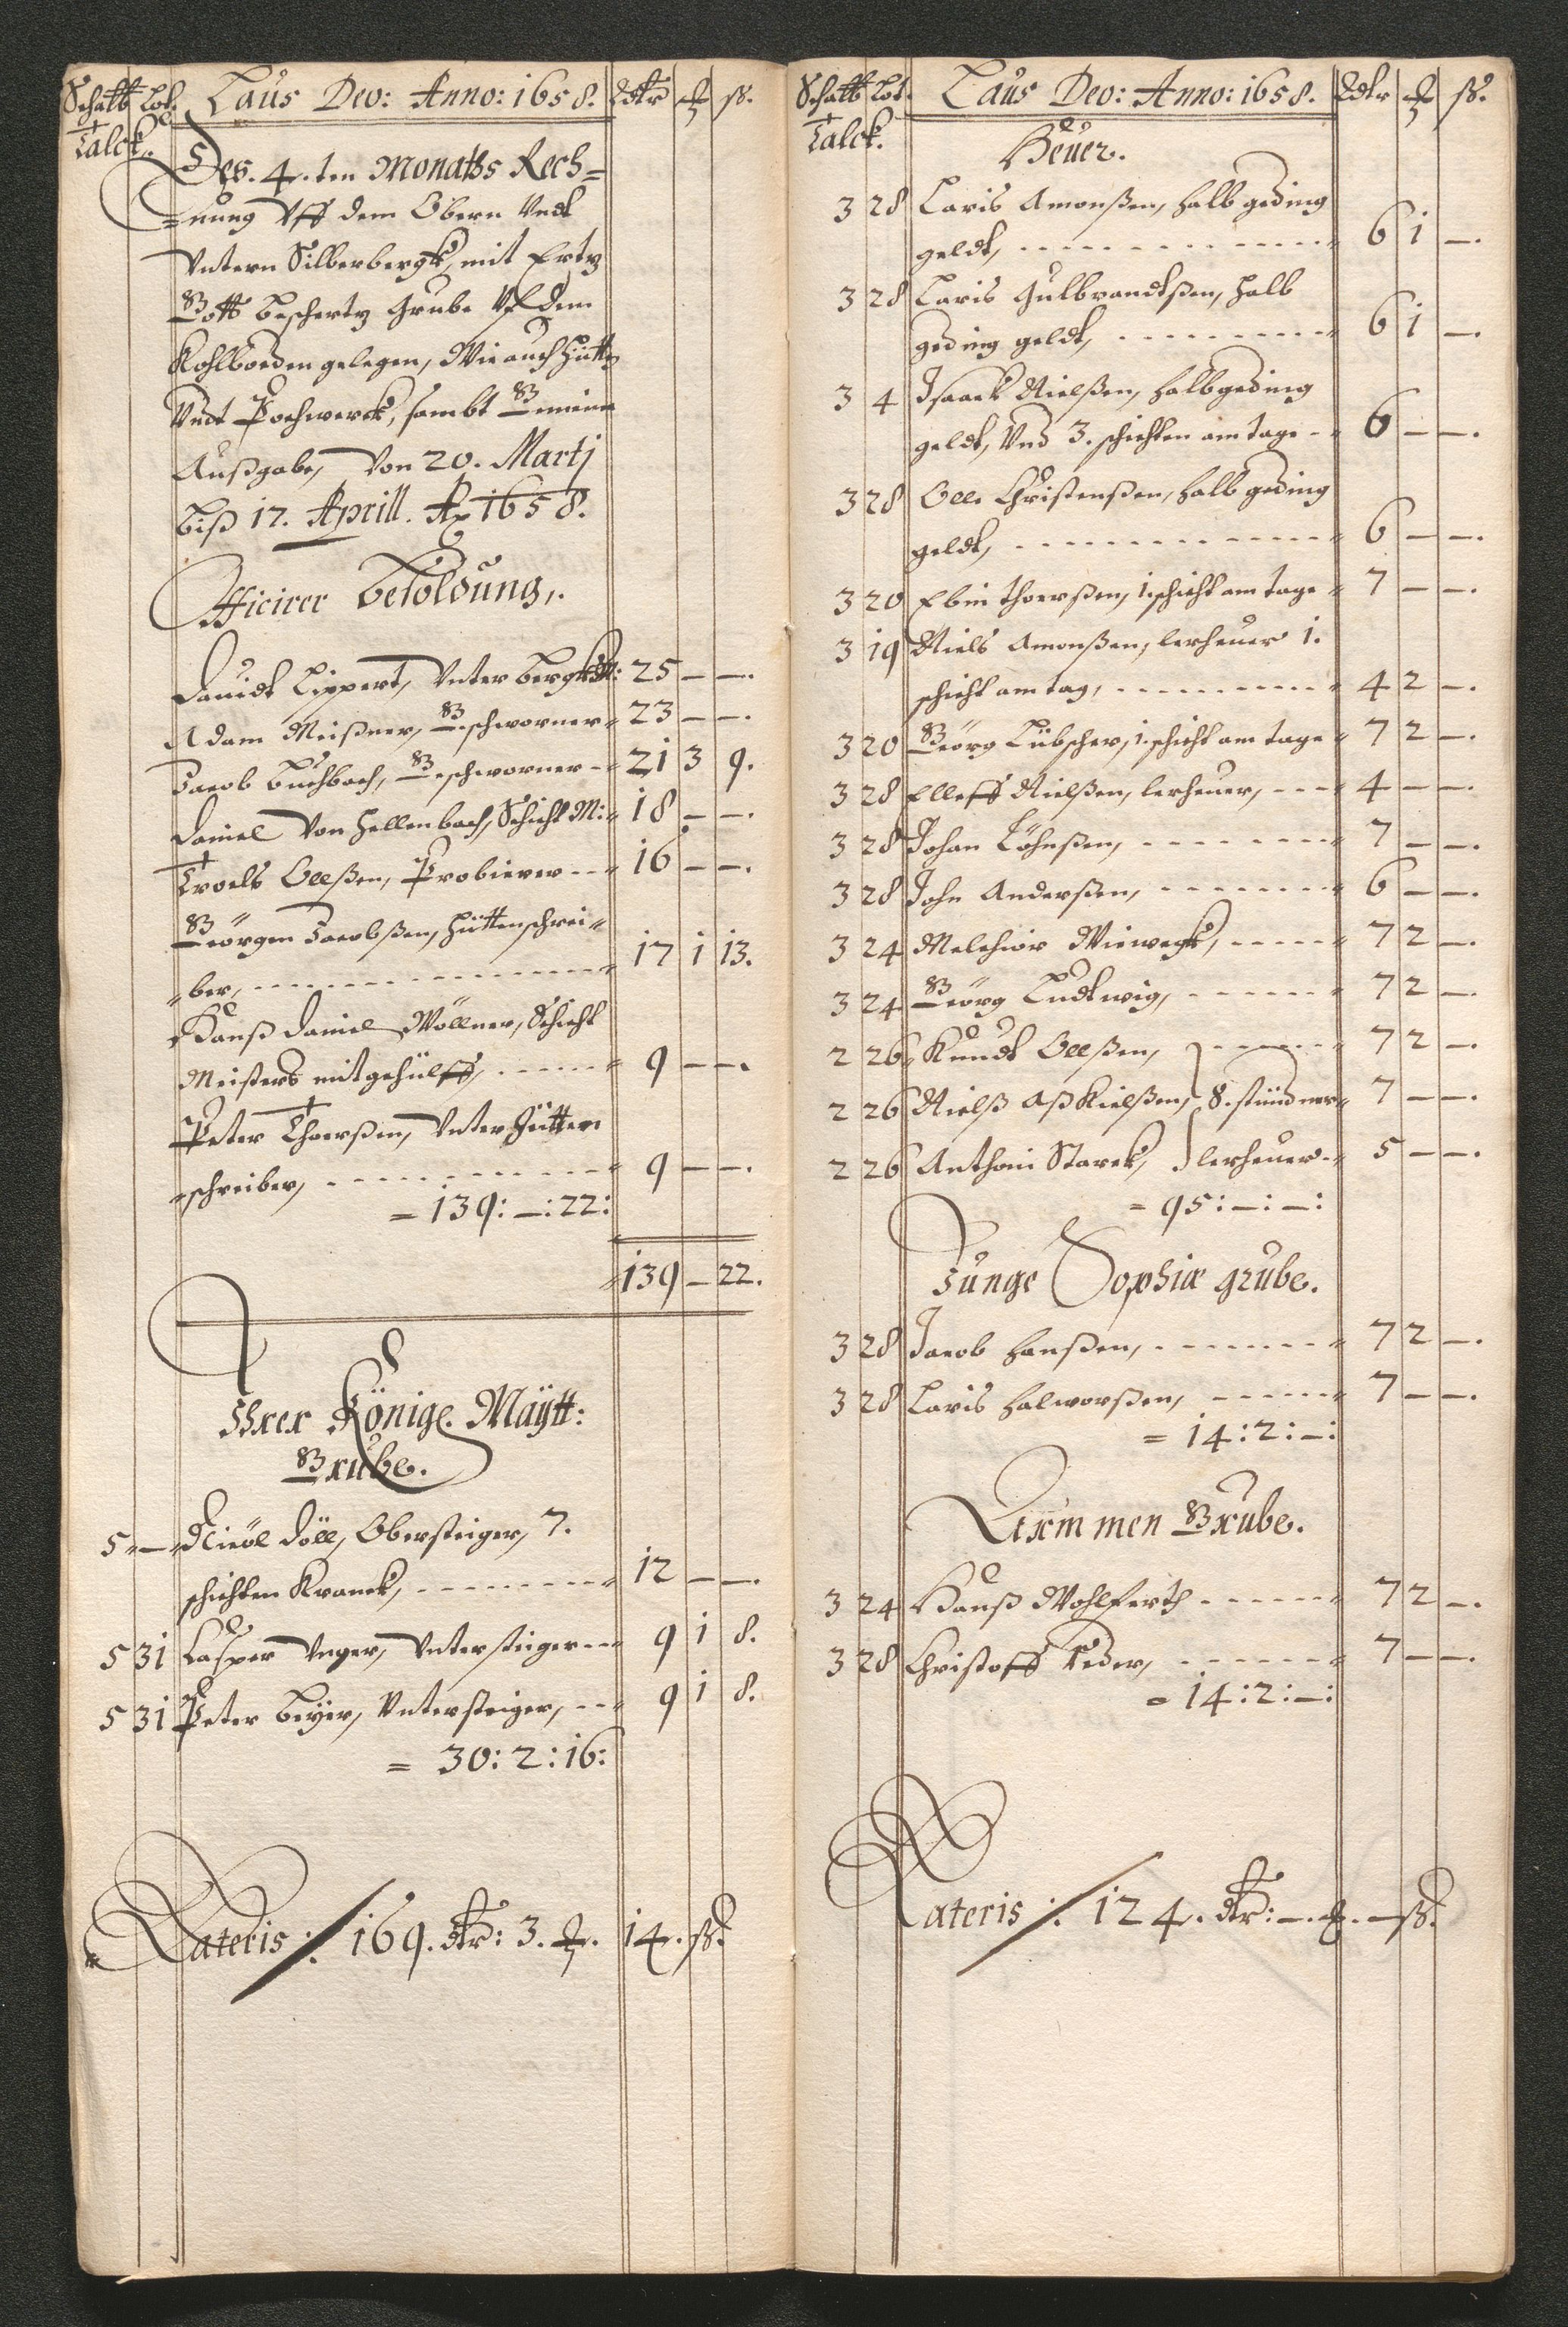 Schalt Lot. Laus Deo: Anno: 1658. Rdtr ß.
Talck.
Des. 4.ten Monaths Rech=
=nung Uff dem Obern Undt
Untern Silberbergk, mit Ertz
Gott bescherts Grube Uf dem
Kohlboeden gelegen, Wie auch Hütt
Undt Pochwerck, sambt Gemeine
Außgabe, Von 20. Martj
Biß 17. Aprill. Ao 1658.
Officirer Besoldung,.
Davidt Lippert, Unter BergkM: 25 — —.
Adam Meißner, Geschworner 23 — —.
Jacob Buchbach, Geschworner 21 3 9.
Daniel Von Hellenbach, Schicht M: 18 — —.
Troels Oelßen, Probierer 16 — —.
Geörgen Jacobßen, Hüttenschrei=
=ber, 17 1 13.
Hanß Daniel Wöllner, Schicht
Meisters mitgehülff, 9 — —.
Peter Thoerßen, Unter Hütten
=schreiber, 9 — —.
= 139: —: 22:
139 — 22.
Ihrer Königl. Maÿtt:
Grube.
5 — Nicol Döll, Obersteiger, 7.
schichten Kranck, 12 — —.
5 31 Casper Unger, Untersteiger 9 1 8.
5 31 Peter Beÿer, Untersteiger, 9 1 8.
= 30: 2: 16:
Lateris ./: 169. dtr: 3. 14. ß.
Schalt Lot. Laus Deo: Anno: 1658. Rdtr ß.
Talck.
Heuer.
3 28 Laris Amonßen, halb geding
geldt, 6 1 —.
3 28 Laris Gulbrandtßen, halb
geding geldt, 6 1 —.
3 4 Isaack Nielßen, halbgeding
geldt, Und 3. schichten am tage 6 — —.
3 28 Olle Christenßen, halb geding
geldt, 6 — —.
3 20 Ebin Thoerßen, 1. schicht am tage 7 — —.
3 19 Niels Amonßen, lerheuer 1.
schicht am tag, 4 2 —.
3 20 Geörg Lübscher, 1. schicht am tage 7 2 —.
3 28 Elleff Nielßen, lerheuer, 4 — —.
3 28 Johan Löhnßen, 7 — —.
3 28 John Anderßen, 6 — —.
3 24 Melchior Wiewegk, 7 2 —.
3 24 Geörg Ludtwig, 7 2 —.
2 26 Knudt Oelßen, 7 2 —.
2 26 Nielß Aßkielßen, 8. stündner 7 — —.
2 26 Anthoni Starck, lerheuer 5 — —.
= 95: —: —:
Junge Sophiæ grube.
3 28 Jacob Hanßen, 7 2 —.
3 28 Laris Halworßen, 7 — —.
= 14: 2: —:
Grube.
3 24 Hanß Wohlferth 7 2 —.
3 28 Christoff Feder, 7 — —.
= 14: 2: —:
Lateris ./: 124. dtr: —. —ß.